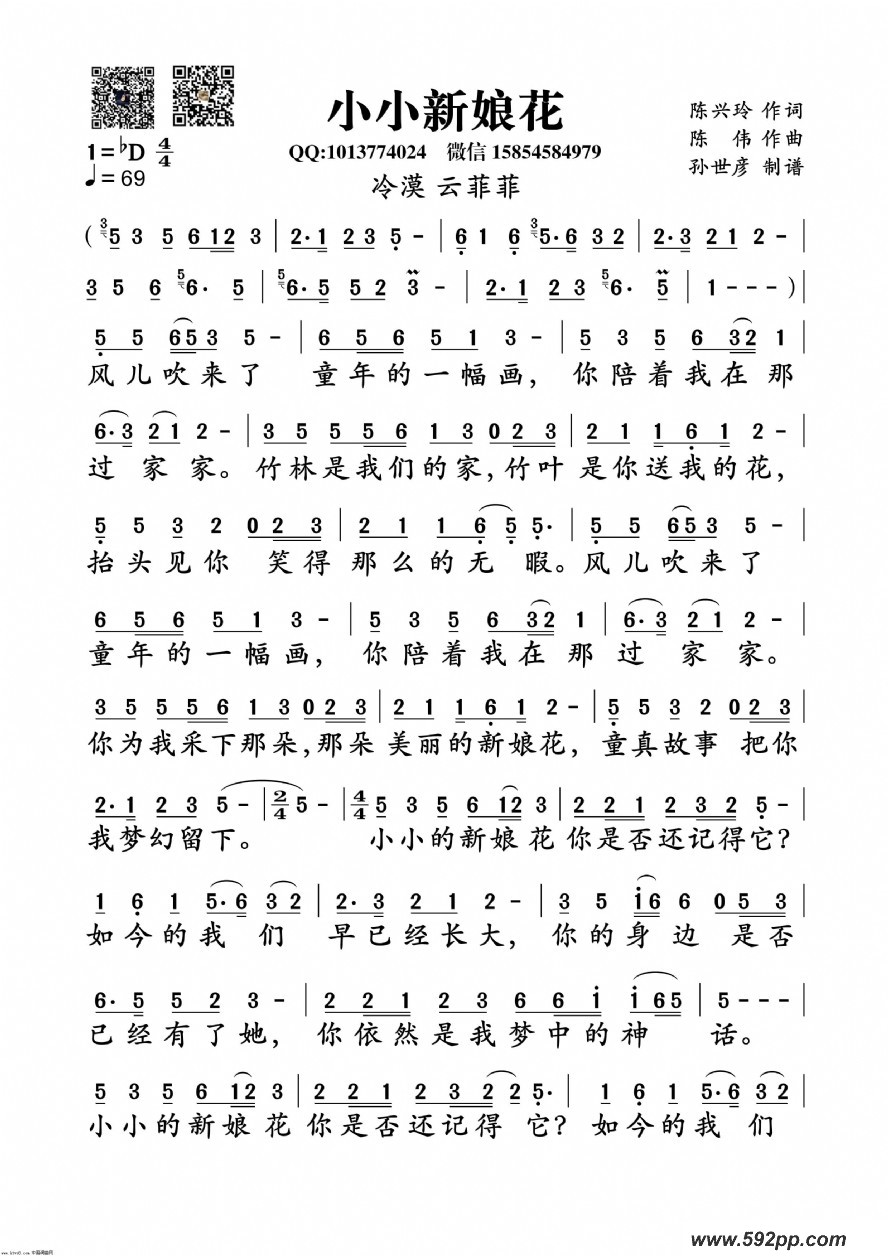 小小新娘花
陈兴玲 作词
陈 伟 作曲
孙世彦 制谱
1=♭D 4/4
♩=69
QQ:1013774024 微信 15854584979
冷漠 云菲菲
( 3 5 3 5 6 1 2 3 | 2· 1 2 3 5 - | 6 1 6 3 5· 6 3 2 | 2· 3 2 1 2 - |
3 5 6 5 6· 5 | 5 6· 5 5 2 3 - | 2· 1 2 3 5 6· 5 | 1 - - - ) |
5 5 6 5 3 5 - | 6 5 6 5 1 3 - | 5 3 5 6 3 2 1 |
风儿吹来了 童年的一幅画, 你陪着我在那
6· 3 2 1 2 - | 3 5 5 5 6 1 3 0 2 3 | 2 1 1 6 1 2 - |
过家家。竹林是我们的家,竹叶是你送我的花,
5 5 3 2 0 2 3 | 2 1 1 6 5 5· | 5 5 6 5 3 5 - |
抬头见你 笑得那么的无 暇。风儿吹来了
6 5 6 5 1 3 - | 5 3 5 6 3 2 1 | 6· 3 2 1 2 - |
童年的一幅画, 你陪着我在那过家家。
3 5 5 5 6 1 3 0 2 3 | 2 1 1 6 1 2 - | 5 5 3 2 0 2 3 |
你为我采下那朵,那朵美丽的新娘花, 童真故事 把你
2· 1 2 3 5 - | 2/4 5 - | 4/4 5 3 5 6 1 2 3 | 2 2 1 2 3 2 2 5 - |
我梦幻留下。 小小的新娘花你是否还记得它?
1 6 1 5· 6 3 2 | 2· 3 2 1 2 - | 3 5 1 6 6 0 5 3 |
如今的我们 早已经长大, 你的身边 是否
6· 5 5 2 3 - | 2 2 1 2 3 6 6 1 | 1 1 6 5 | 5 - - - |
已经有了她, 你依然是我梦中的神 话。
5 3 5 6 1 2 3 | 2 2 1 2 3 2 2 5· | 1 6 1 5· 6 3 2 |
小小的新娘花你是否还记得它? 如今的我们
www.592pp.com